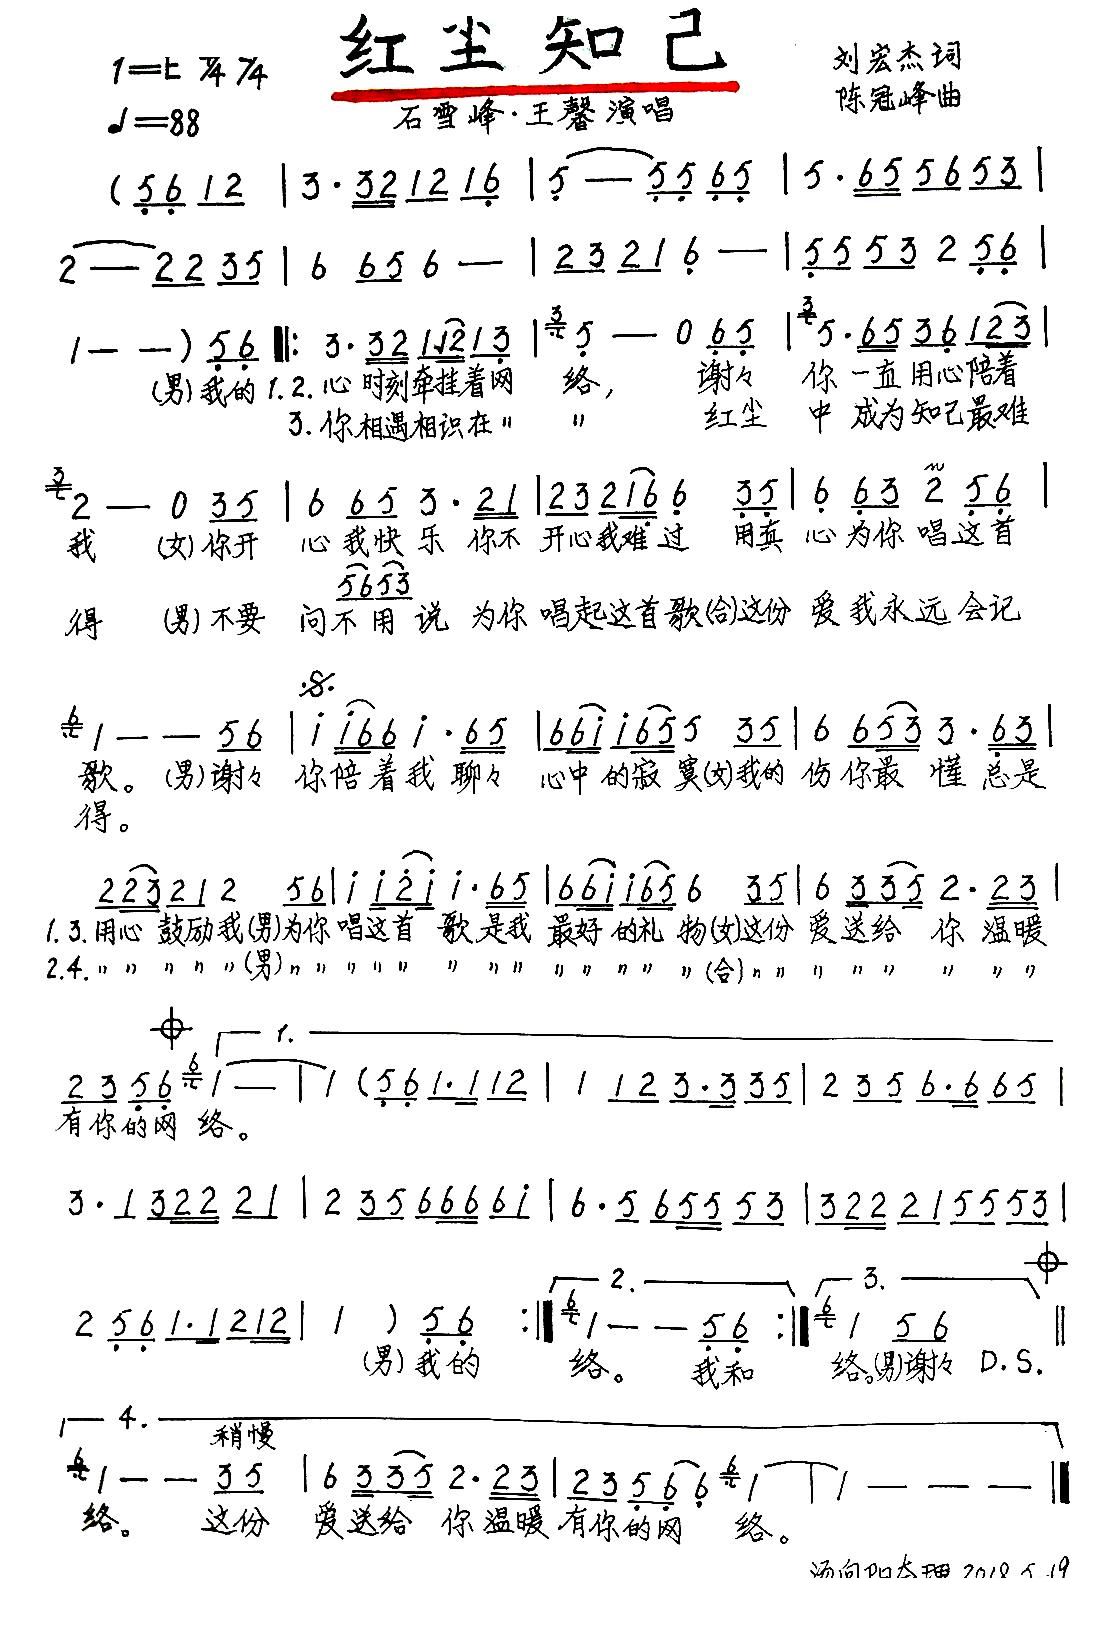 红尘知己
1=E 4/4 2/4
♩=88
石雪峰·王馨演唱
刘宏杰词
陈冠峰曲
(5612|3·321216|5—5565|5·6556553|
2—2235|6 656—|23216—|5553256|
1——)56‖:3·321213|5—0 65|5·6536123|
(男)我的1.2.心时刻牵挂着网 络, 谢々 你一直用心陪着
3.你相遇相识在〃 〃 红尘 中成为知己最难
2—0 35|6 65 3·21|232166 35|6 63 2 56|
我 (女)你开 心我快乐你不 开心我难过 用真 心为你唱这首
5653
得 (男)不要 问不用说 为你 唱起这首歌(合)这份 爱我永远会记
1——56|i i66i·65|66ii655 35|6 653 3·63|
歌。(男)谢々 你陪着我聊々 心中的寂寞(女)我的 伤你最 懂总是
得。
223212 56|i i2i i·65|66ii656 35|6 335 2·23|
1.3.用心鼓励我(男)为你唱这首 歌是我 最好的礼物(女)这份 爱送给 你温暖
2.4.〃〃〃〃〃(男)〃〃〃〃〃 〃〃〃 〃〃〃〃〃(合)〃〃〃〃〃 〃〃〃
1.
2356 1—|1(561·112|1 123·335|2 356·665|
有你的网 络。
3·132221|2 3566661|6·5655553|32221 5553|
2 561·1212|1 )56:‖ 2. 1——56:‖ 3. 1 56‖
(男)我的 络。 我和 络。(男)谢々 D.S.
4.
稍慢
1——35|6 335 2·23|23566 1—|1———‖
络。 这份 爱送给 你温暖 有你的网 络。
2018.5.19